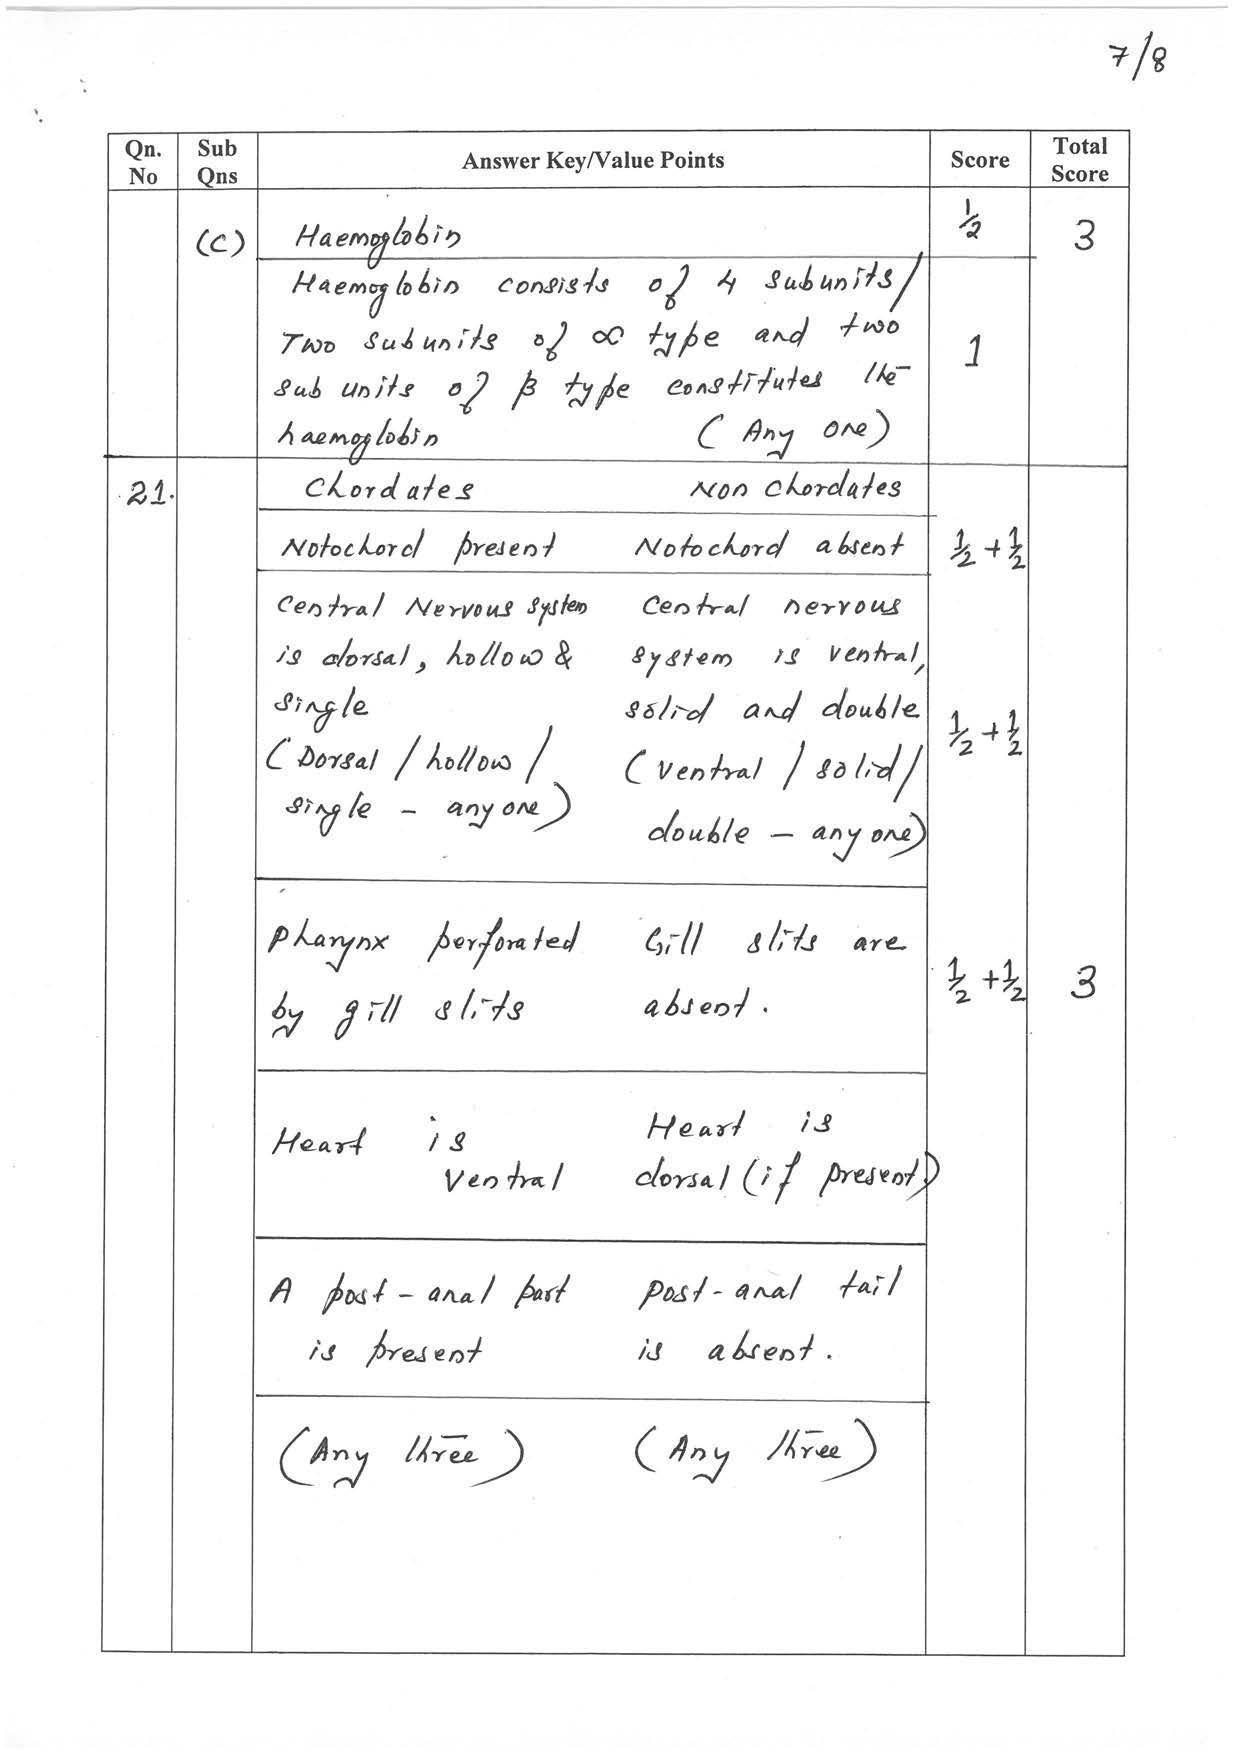 7/8
Qn. No Sub Qns Answer Key/Value Points Score Total Score
(C) Haemoglobin 1/2 3
Haemoglobin consists of 4 subunits/
Two subunits of ∝ type and two
sub units of β type constitutes the 1
haemoglobin (Any one)
21. Chordates Non chordates
Notochord present Notochord absent 1/2 + 1/2
Central Nervous system Central nervous
is dorsal, hollow & system is ventral,
single solid and double 1/2 + 1/2
(Dorsal / hollow / (ventral / solid/
single - any one) double - any one)
Pharynx perforated Gill slits are
by gill slits absent. 1/2 + 1/2 3
Heart is Heart is
ventral dorsal (if present)
A post-anal part post-anal tail
is present is absent.
(Any three) (Any three)